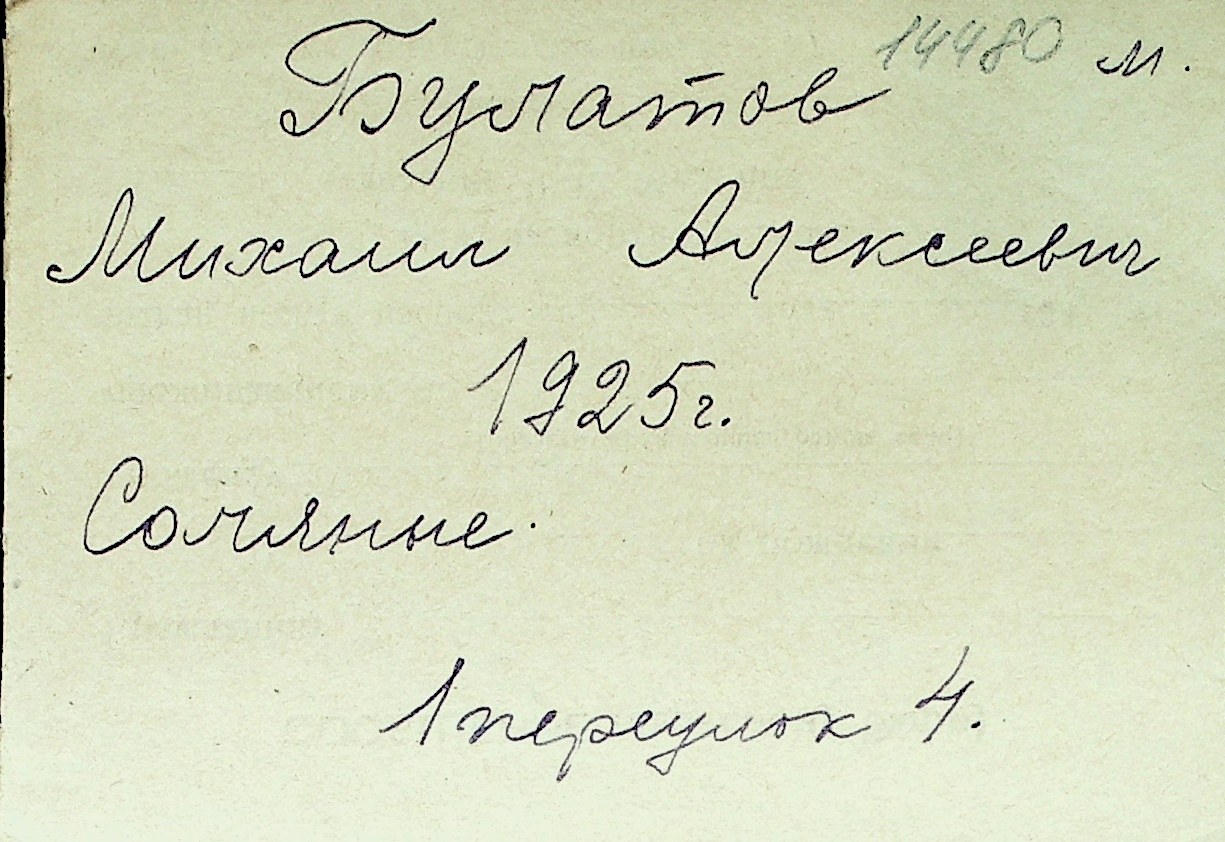 Булатов 14480 м.
Михаил Алексеевич
1925г.
Соляные.
1 переулок 4.